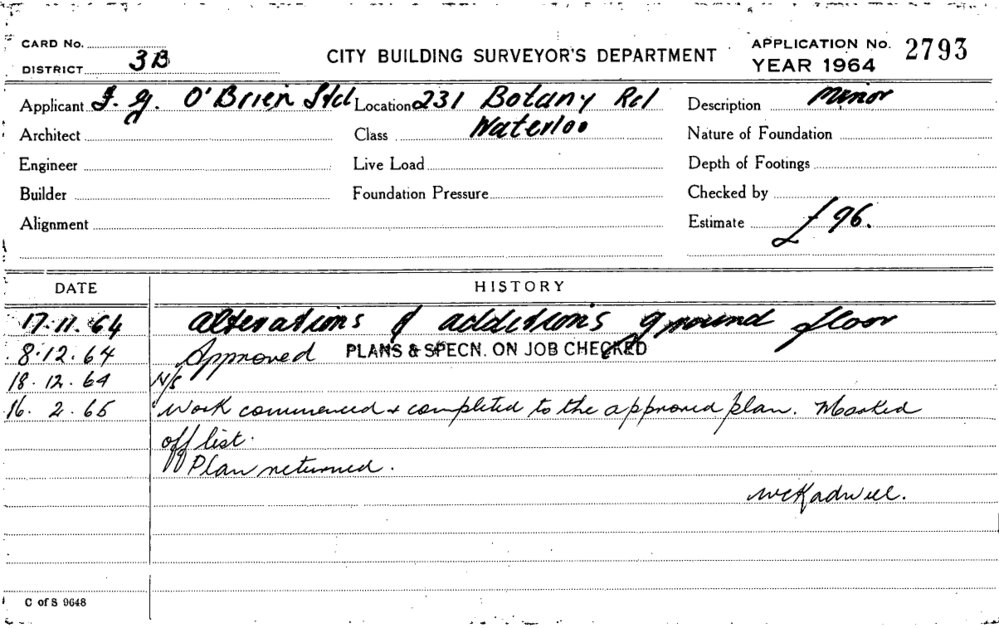 CARD No.
CITY BUILDING SURVEYOR'S DEPARTMENT
APPLICATION No. 2793
DISTRICT 3B
YEAR 1964
Applicant F. G. O'Brien Ltd Location 231 Botany Rd Description Minor
Architect Class Waterloo Nature of Foundation
Engineer Live Load Depth of Footings
Builder Foundation Pressure Checked by
Alignment Estimate £96.
DATE HISTORY
17.11.64 Alterations & additions ground floor
8.12.64 Approved PLANS & SPECN. ON JOB CHECKED
18.12.64 N/S
16.2.65 Work commenced & completed to the approved plan. Marked
off list.
Plan returned.
C of S 9648